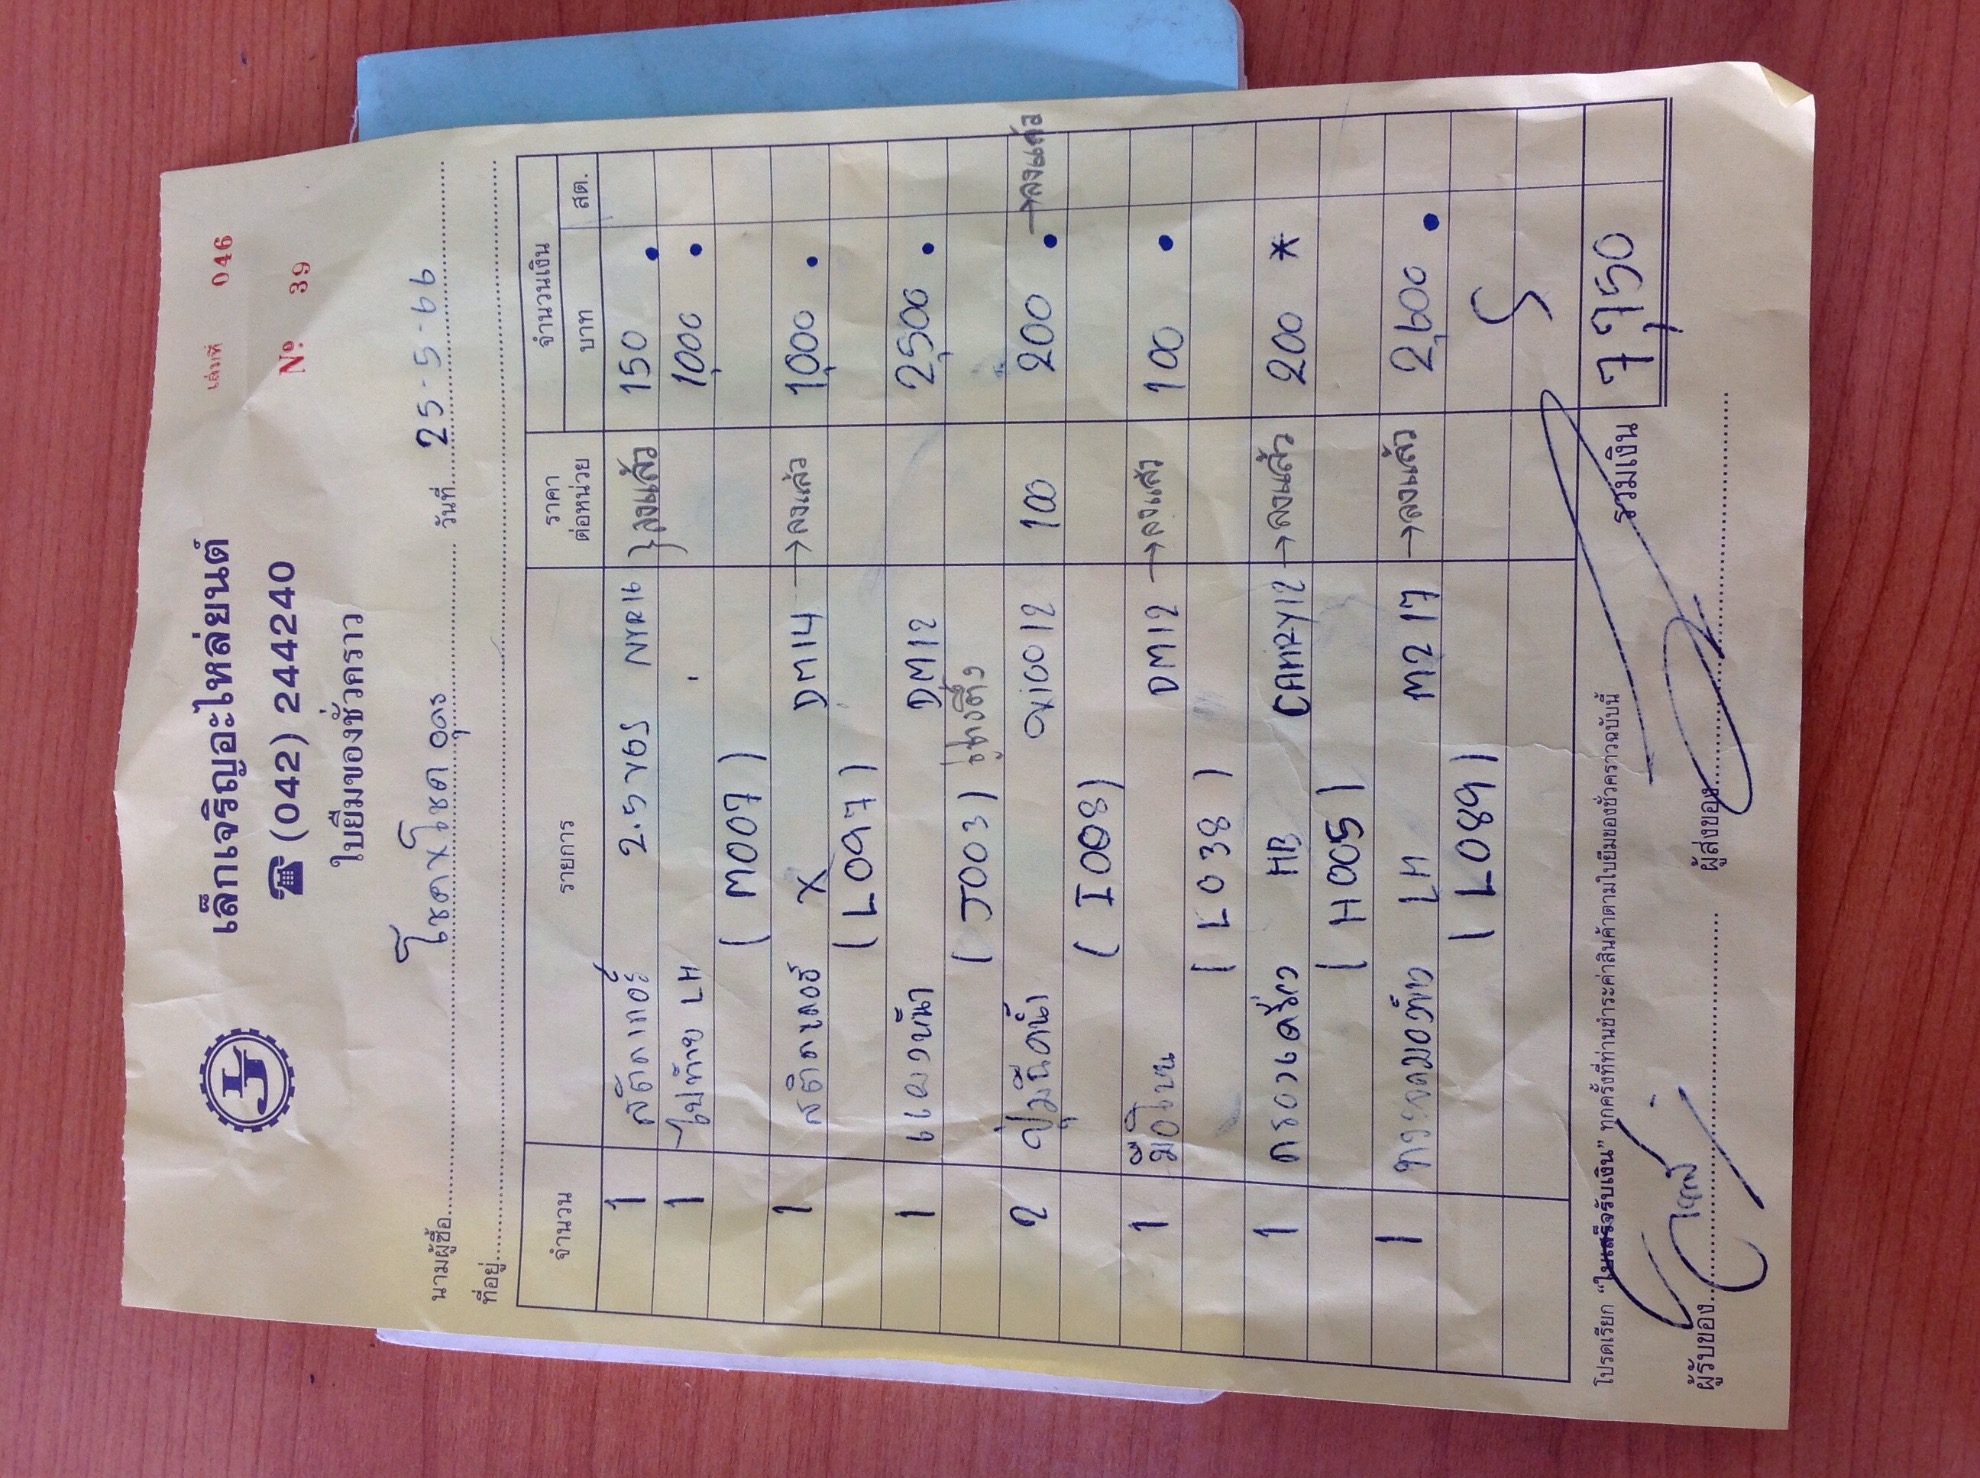 เล่มที่ 046
เล็กเจริญอะไหล่ยนต์
☎ (042) 244240
Nº 39
ใบยืมของชั่วคราว
LJ
นามผู้ซื้อ โชคxโชค อุดร วันที่ 25-5-66
ที่อยู่
จำนวน รายการ ราคาต่อหน่วย จำนวนเงิน
บาท สต.
1 2.5 VGS NYR16 } ลงแล้ว 150 •
1 ไฟท้าย LH 1,000 •
(M007)
1 X DM14 → ลงแล้ว 1,000 •
(L097)
1 DM12 2,500 •
(J003)
2 ปั๊มฉีดน้ำ VIGO12 100 200 • → ลงแล้ว
(I008)
1 มือโหน DM12 → ลงแล้ว 100 •
(L038)
1 HB CAMRY12 → ลงแล้ว 200 *
(H005)
1 LH M2 17 → ลงแล้ว 2,600 •
(L089)
รวมเงิน 7,750
โปรดเรียก "ใบเสร็จรับเงิน" ทุกครั้งที่ท่านชำระค่าสินค้าตามใบยืมของชั่วคราวฉบับนี้
ผู้รับของ ผู้ส่งของ